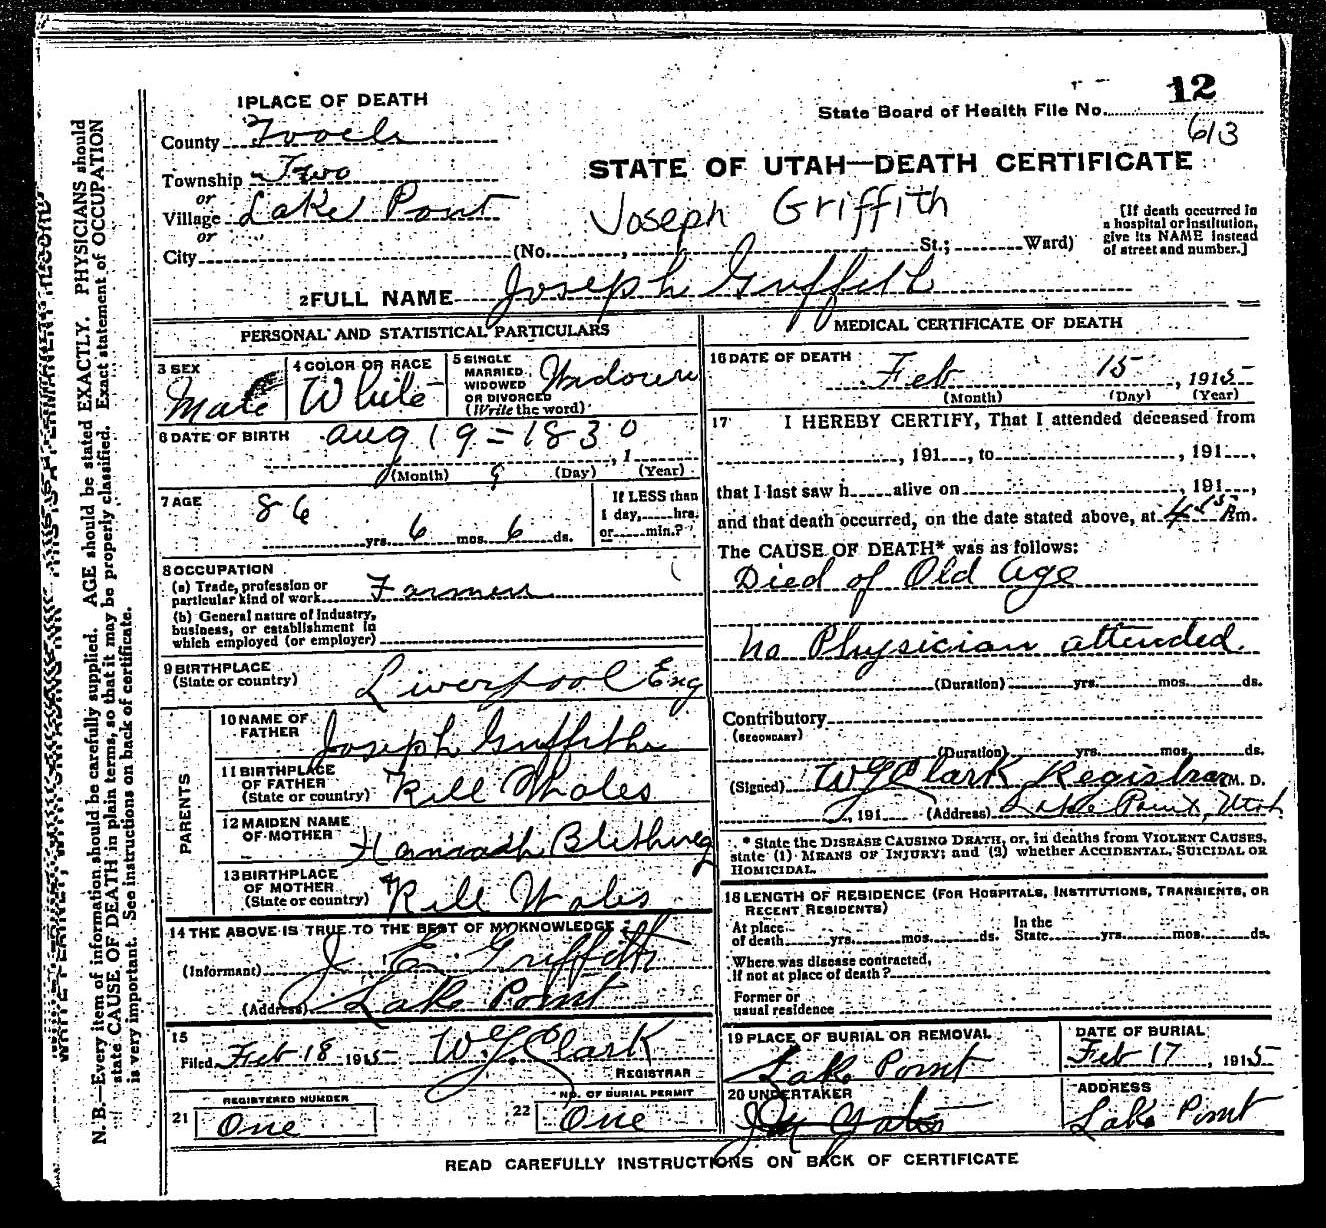 12
State Board of Health File No.
613
1 PLACE OF DEATH
County Tooele
Township Two
or
Village Lake Point
or
City
STATE OF UTAH—DEATH CERTIFICATE
Joseph Griffith
(No. , St.; Ward)
[If death occurred in
a hospital or institution,
give its NAME instead
of street and number.]
2 FULL NAME Joseph Griffith
PERSONAL AND STATISTICAL PARTICULARS
3 SEX
Male
4 COLOR OR RACE
White
5 SINGLE
MARRIED
WIDOWED
OR DIVORCED
(Write the word)
Widower
6 DATE OF BIRTH
Aug 19 = 1830
, 1
(Month) 9 (Day) (Year)
7 AGE
86 yrs. 6 mos. 6 ds.
If LESS than
1 day, hrs.
or min.?
8 OCCUPATION
(a) Trade, profession or
particular kind of work Farmer
(b) General nature of industry,
business, or establishment in
which employed (or employer)
9 BIRTHPLACE
(State or country)
Liverpool Eng
PARENTS
10 NAME OF
FATHER
Joseph Griffith
11 BIRTHPLACE
OF FATHER
(State or country)
Rill Whales
12 MAIDEN NAME
OF MOTHER
Hannah
13 BIRTHPLACE
OF MOTHER
(State or country)
Rill Wales
14 THE ABOVE IS TRUE TO THE BEST OF MY KNOWLEDGE
(Informant) J. E. Griffith
(Address) Lake Point
15
Filed Feb 18 1915 W G Clark
REGISTRAR
21
REGISTERED NUMBER
One
22
NO. OF BURIAL PERMIT
One
MEDICAL CERTIFICATE OF DEATH
16 DATE OF DEATH
Feb 15, 1915
(Month) (Day) (Year)
17 I HEREBY CERTIFY, That I attended deceased from
, 191 , to , 191 ,
that I last saw h alive on , 191 ,
and that death occurred, on the date stated above, at 4 15 A m.
The CAUSE OF DEATH* was as follows:
Died of Old Age
No Physician attended.
(Duration) yrs. mos. ds.
Contributory
(SECONDARY)
(Duration) yrs. mos. ds.
(Signed) W G Clark Registrar M. D.
, 191 (Address) Lake Point, Utah
* State the DISEASE CAUSING DEATH, or, in deaths from VIOLENT CAUSES,
state (1) MEANS OF INJURY; and (2) whether ACCIDENTAL, SUICIDAL OR
HOMICIDAL.
18 LENGTH OF RESIDENCE (FOR HOSPITALS, INSTITUTIONS, TRANSIENTS, OR
RECENT RESIDENTS)
At place
of death yrs. mos. ds.
In the
State yrs. mos. ds.
Where was disease contracted,
if not at place of death?
Former or
usual residence
19 PLACE OF BURIAL OR REMOVAL
Lake Point
DATE OF BURIAL
Feb 17, 1915
20 UNDERTAKER
Yates
ADDRESS
Lake Point
READ CAREFULLY INSTRUCTIONS ON BACK OF CERTIFICATE
N. B.—Every item of information should be carefully supplied. AGE should be stated EXACTLY. PHYSICIANS should
state CAUSE OF DEATH in plain terms, so that it may be properly classified. Exact statement of OCCUPATION
is very important. See instructions on back of certificate.